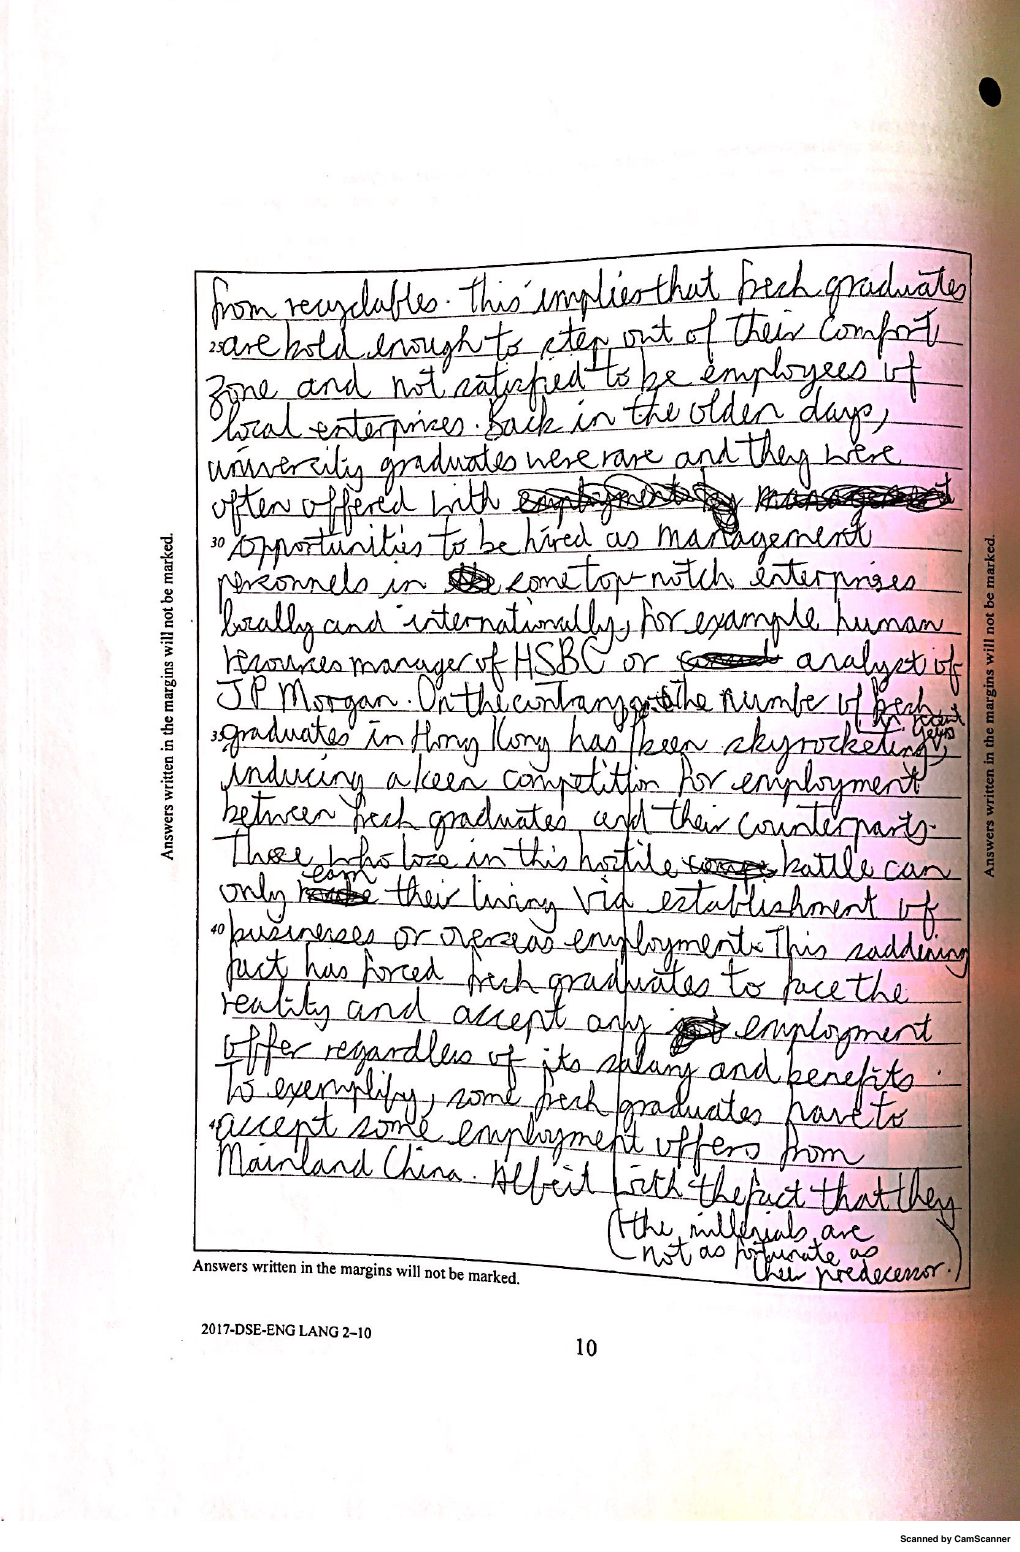 from recyclables. This implies that fresh graduates
25 are bold enough to step out of their comfort
zone and not satisfied to be employees of
local enterprises. Back in the olden days,
university graduates were rare and they were
often offered with
30 opportunities to be hired as management
personnels in some top-notch enterprises
locally and internationally, for example human
resources manager of HSBC or analyst of
JP Morgan. On the contrary, the number of fresh
in recent years
35 graduates in Hong Kong has been skyrocketing,
inducing a keen competition for employment
between fresh graduates and their counterparts.
Those who lose in this hostile battle can
only earn their living via establishment of
40 businesses or overseas employment. This saddening
fact has forced fresh graduates to face the
reality and accept any employment
offer regardless of its salary and benefits.
To exemplify, some fresh graduates have to
45 accept some employment offers from
Mainland China. Albeit with the fact that they
(the millenials are
not as fortunate as
their predecessor.)
Answers written in the margins will not be marked.
Answers written in the margins will not be marked.
Answers written in the margins will not be marked.
2017-DSE-ENG LANG 2–10
10
Scanned by CamScanner